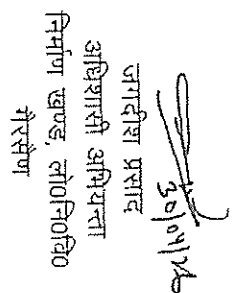 30/04/26
जगदीश प्रसाद
अधिशासी अभियन्ता
निर्माण खण्ड, लो०नि०वि०
गैरसैंण